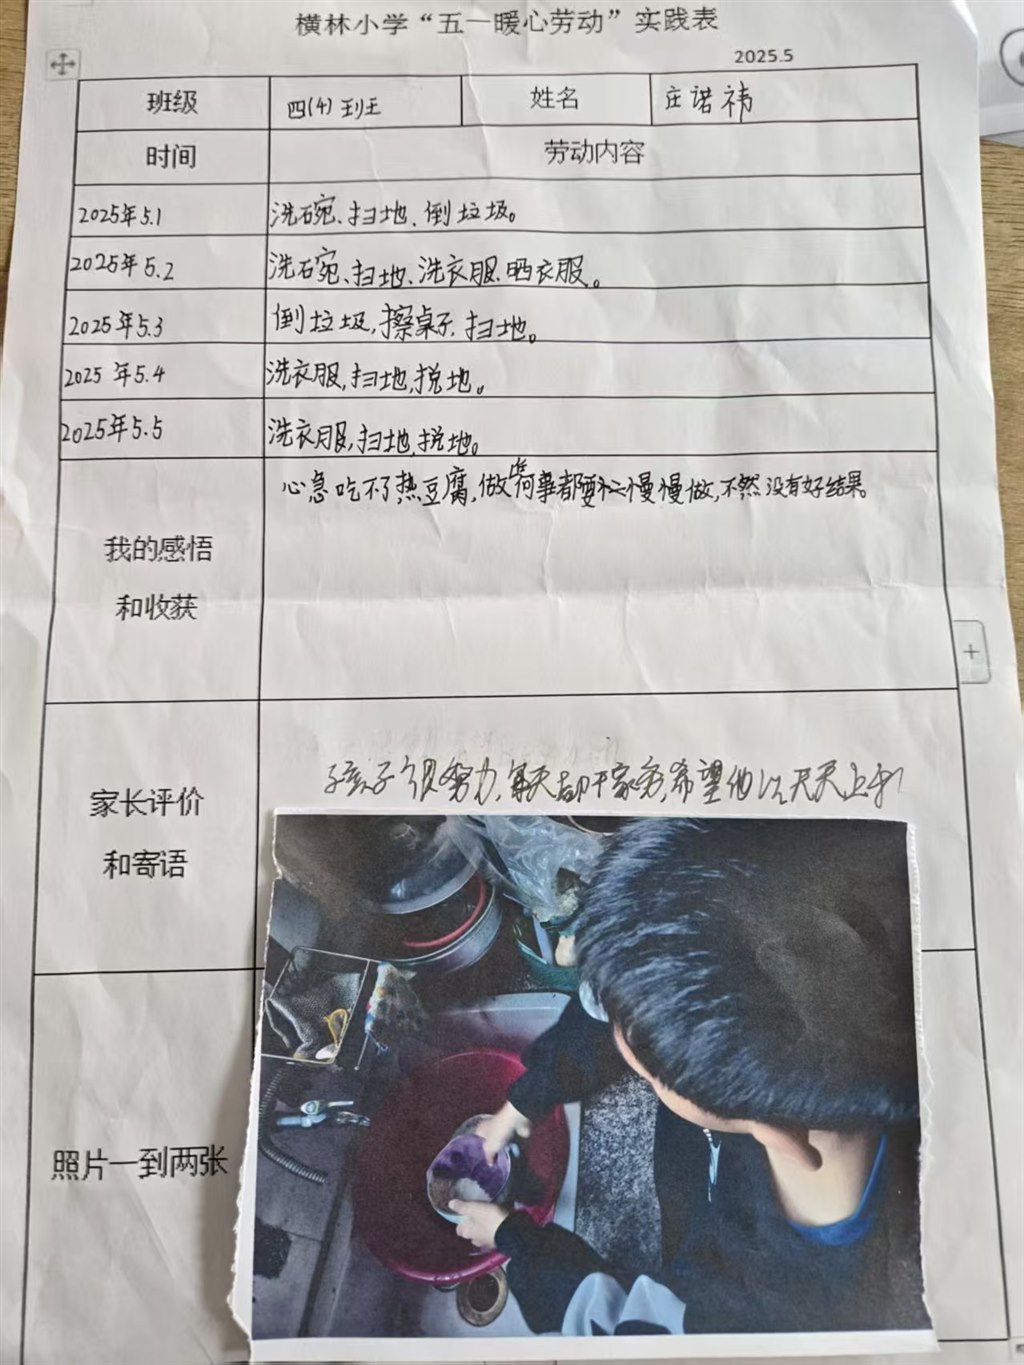 横林小学“五一暖心劳动”实践表
2025.5
班级 四(4)班 姓名 庄诺祎
时间 劳动内容
2025年5.1 洗碗、扫地、倒垃圾。
2025年5.2 洗碗、扫地、洗衣服、晒衣服。
2025年5.3 倒垃圾,擦桌子、扫地。
2025年5.4 洗衣服,扫地,挩地。
2025年5.5 洗衣服,扫地,挩地。
心急吃不了热豆腐,做啥事都要慢慢做,不然没有好结果。
我的感悟
和收获
孩子很努力,每天都干家务,希望他天天上
家长评价
和寄语
照片一到两张